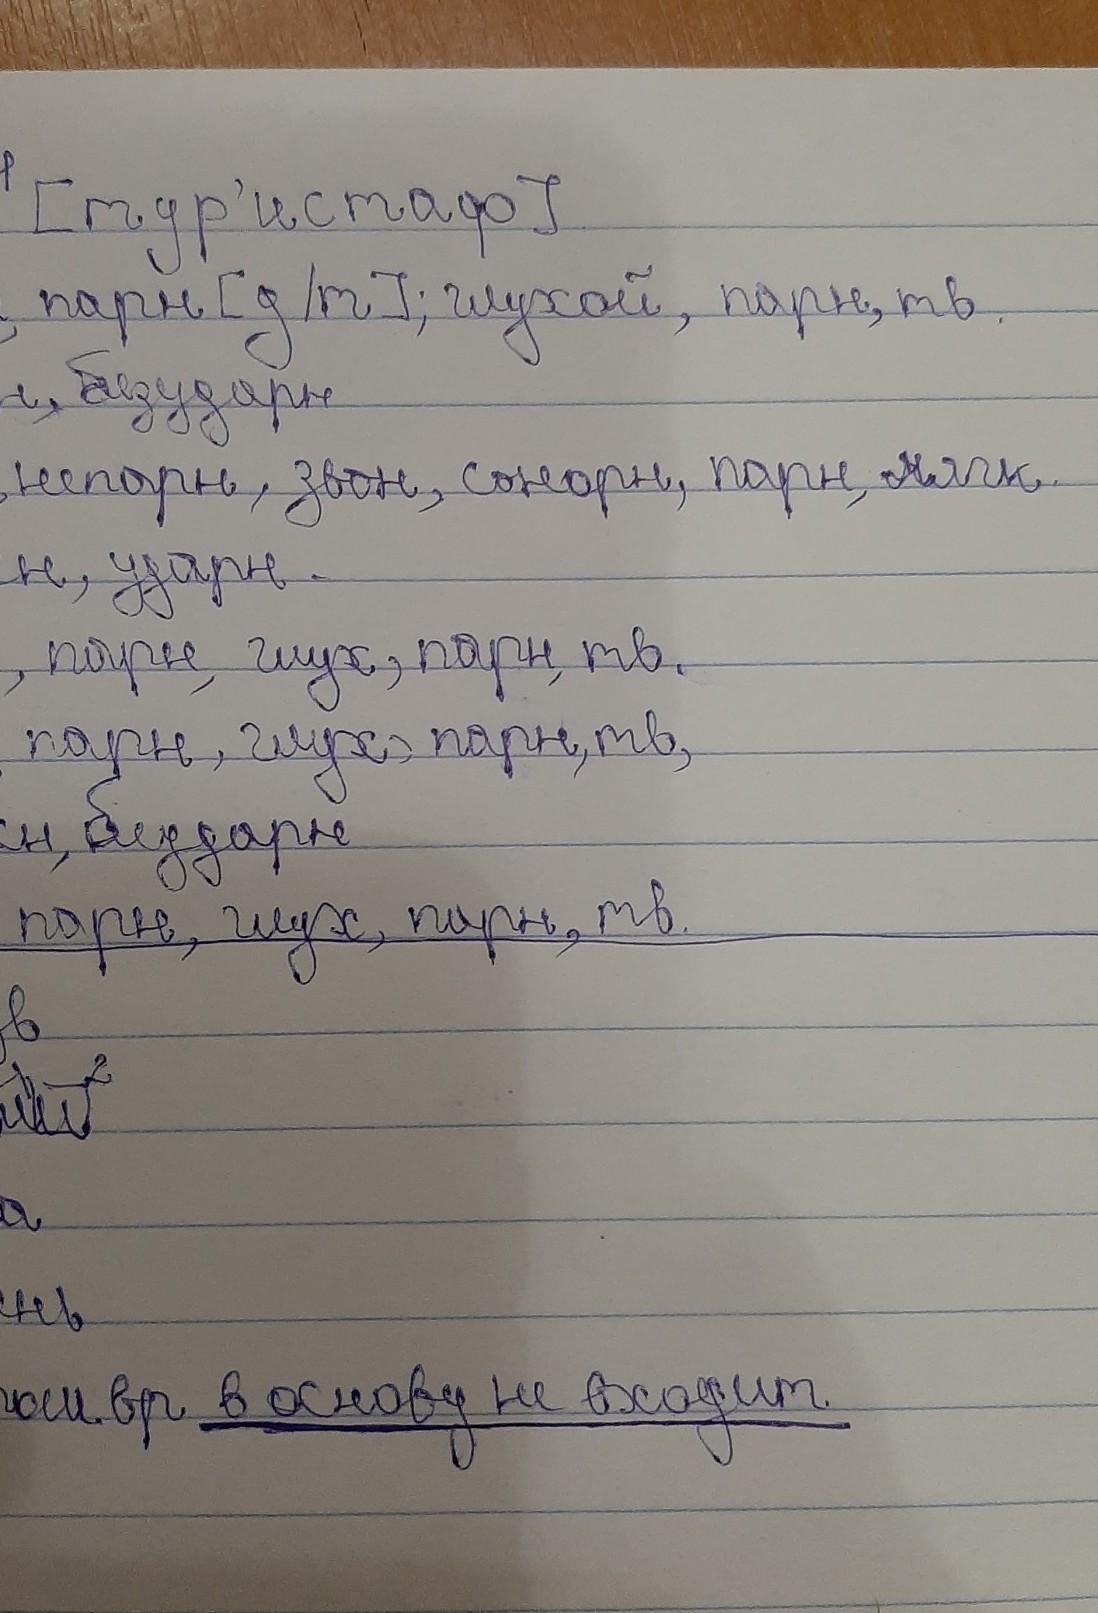 [тур'истаф]
, парн [д/т]; глухой, парн, тв.
н, безударн
, непарн, звон, сонорн, парн, мягк.
н, ударн.
, парн, глух, парн, тв.
парн, глух, парн, тв,
сн, безударн
парн, глух, парн, тв.
в
2
а
нь
прош. вр в основу не входит.